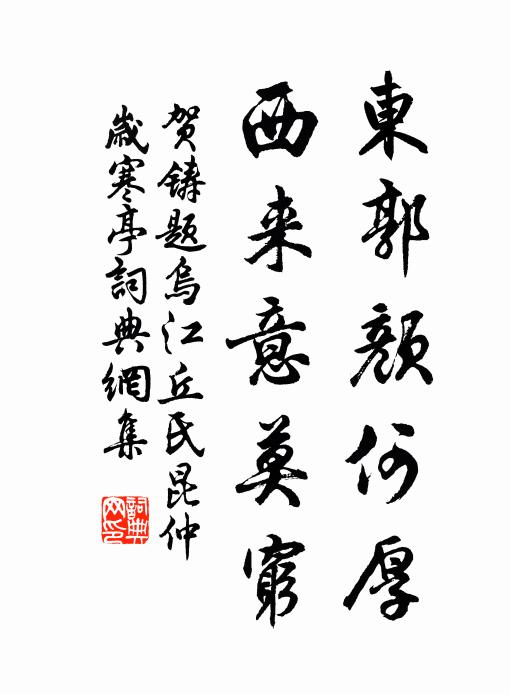 東郭顏何厚
西来意莫窮
贺鑄題烏江丘氏昆仲
歲寒亭詞典網集
詞典网印